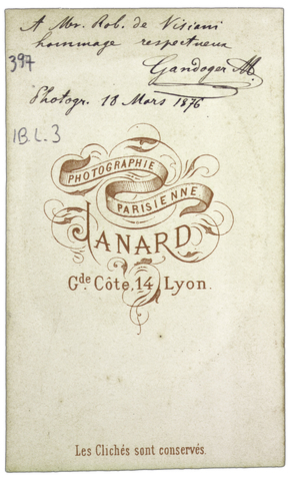 A Mr. Rob. de Visiani
hommage respectueux
397
Gandoger M.
Photogr. 18 Mars 1876
IB.L.3
PHOTOGRAPHIE
PARISIENNE
JANARD
Gde. Côte, 14 Lyon.
Les Clichés sont conservés.